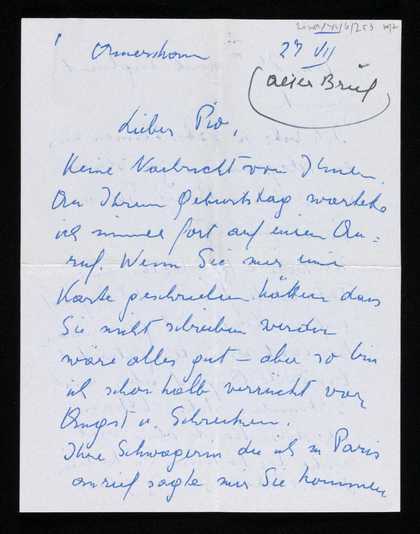 27 VII
(alter Brief)
Lieber Pio,
Keine Nachricht von Ihnen.
An Ihrem Geburtstag wartete
ich immer fort auf einen An=
ruf. Wenn Sie mir eine
Karte geschrieben hätten dass
Sie nicht schreiben werden
wäre alles gut – aber so bin
ich schon halb verrückt vor
Angst u. Schrecken.
Ihre Schwägerin die ich in Paris
anrief sagte mir Sie kommen